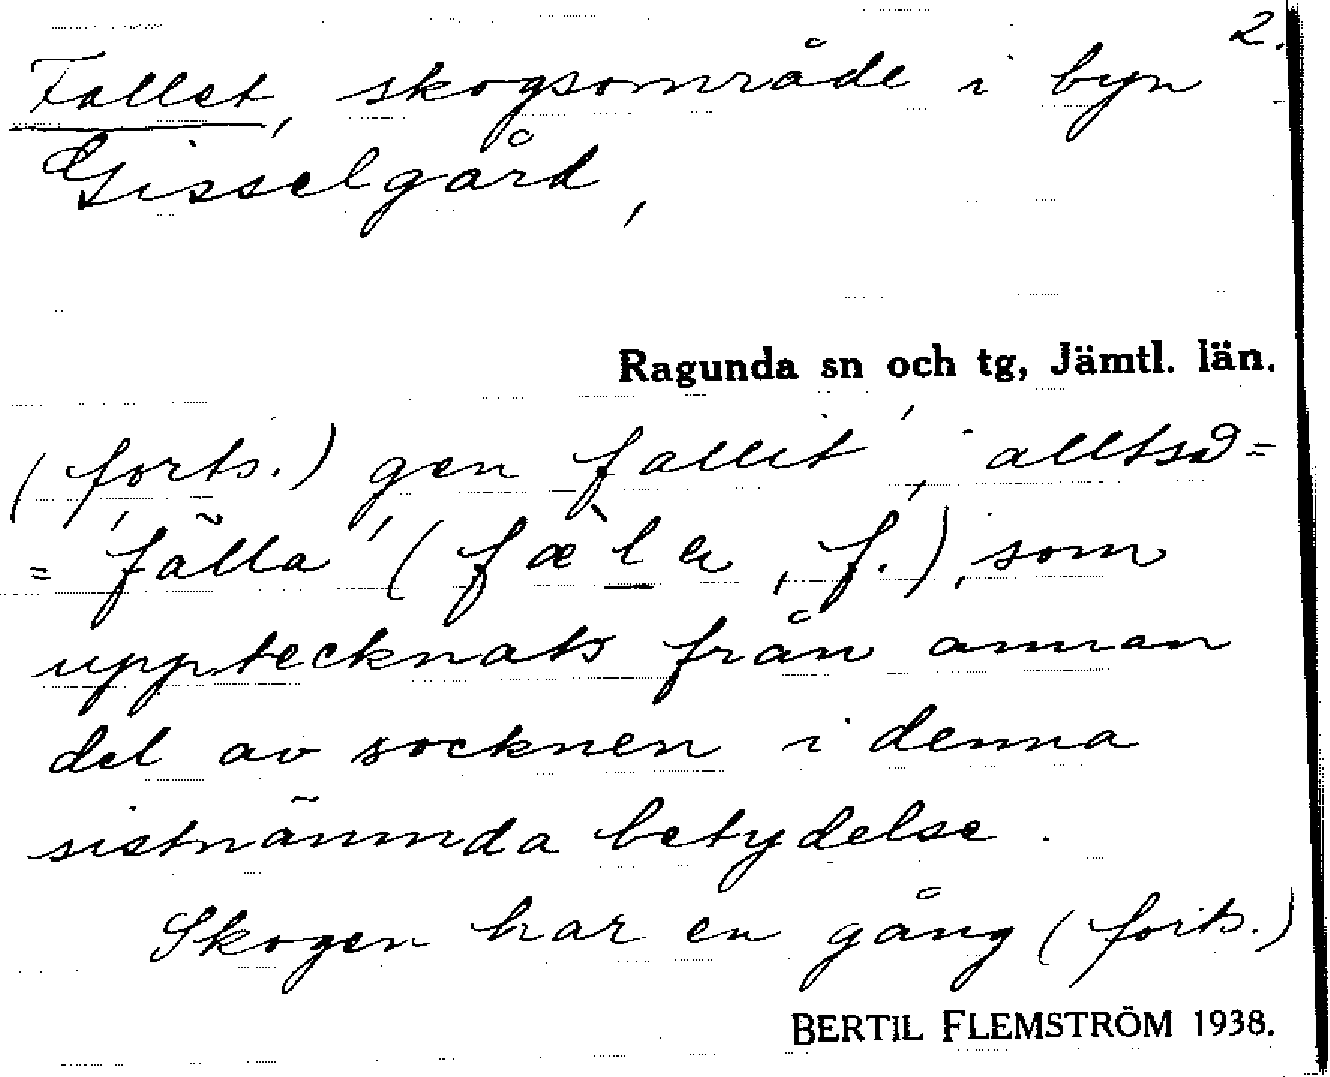 2.
Fallet, skogsområde i byn
Gisselgård,
Ragunda sn och tg, Jämtl. län.
(forts.) gen fallit', alltså =
= 'fälla' (fæ̀la, f.), som
upptecknats från annan
del av socknen i denna
sistnämnda betydelse.
Skogen har en gång (forts.)
BERTIL FLEMSTRÖM 1938.